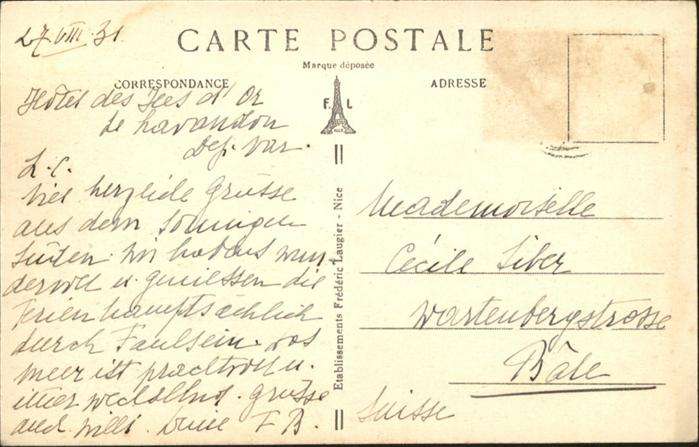 27.VIII.31.
CARTE POSTALE
Marque déposée
CORRESPONDANCE
ADRESSE
F. L
Hôtel des Iles d'Or
Le Lavandou
Dep. Var.
L. C.
Viel herzliche Grüsse
aus dem sonnigen
Süden. Wir habens wun
dervoll u. geniessen die
Ferien hauptsächlich
durch Faulsein. Das
Meer ist prachtvoll u.
immer wechselnd. Grüsse
auch Willi. Deine F B.
Etablissements Frédéric Laugier - Nice
Mademoiselle
Cécile Siber
Wartenbergstrasse
Bâle
Suisse